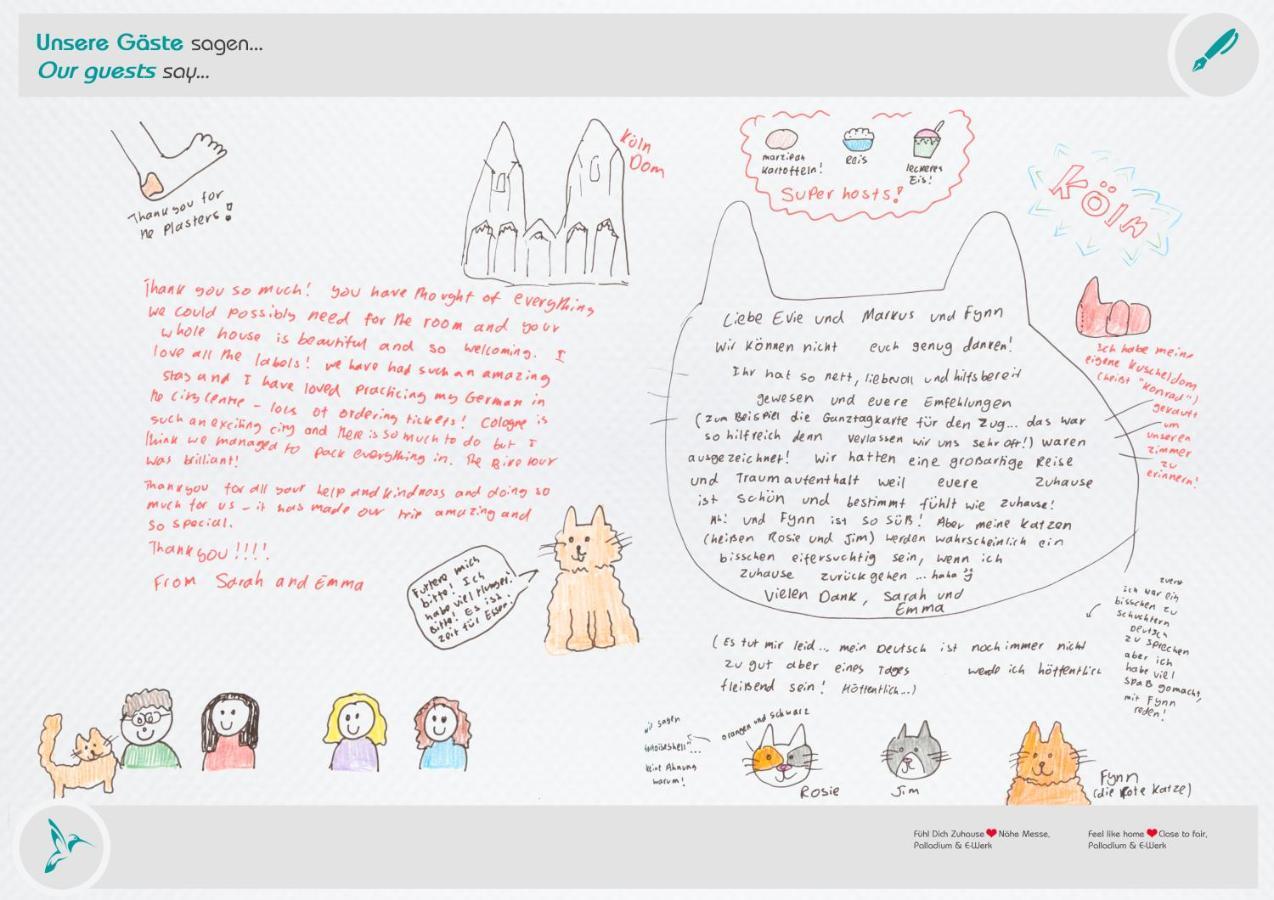 Unsere Gäste sagen...
Our guests say...
Thank you for
the Plasters!
Köln
Dom
marzipan
kartoffeln!
Reis
leckeres
Eis!
Super hosts!
Köln
Thank you so much! you have thought of everything
we could possibly need for the room and your
whole house is beautiful and so welcoming. I
love all the labels! we have had such an amazing
stay and I have loved practicing my German in
the city centre - lots of ordering tickets! Cologne is
such an exciting city and there is so much to do but I
think we managed to pack everything in. The Bike tour
was brilliant!
Thankyou for all your help and kindness and doing so
much for us - it has made our trip amazing and
so special.
Thankyou!!!!
From Sarah and Emma
Futtere mich
bitte! Ich
habe viel Hunger!
Bitte! Es ist
zeit für Essen!
Liebe Evie und Markus und Fynn
Wir können nicht euch genug danken!
Ihr hat so nett, liebevoll und hilfsbereit
gewesen und euere Emfehlungen
(zum Beispiel die Ganztagkarte für den Zug... das war
so hilfreich denn verlassen wir uns sehr oft!) waren
ausgezeichnet! Wir hatten eine großartige Reise
und Traumaufenthalt weil euere Zuhause
ist schön und bestimmt fühlt wie zuhause!
Ah! und Fynn ist so süß! Aber meine Katzen
(heißen Rosie und Jim) werden wahrscheinlich ein
bisschen eifersuchtig sein, wenn ich
zuhause zurück gehen ... haha
Vielen Dank, Sarah und
Emma
Ich habe meine
eigene Kuscheldom
(heißt "Konrad")
gekauft
um
unseren
zimmer
zu
erinnern!
(Es tut mir leid... mein Deutsch ist noch immer nicht
zu gut aber eines Tages werde ich höffentlich
fleißend sein! Höffentlich...)
zuerst
ich war ein
bisschen zu
schuchtern
Deutsch
zu sprechen
aber ich
habe viel
Spaß gemacht,
mit Fynn
reden!
wir sagen
"tortoiseshell"...
keine Ahnung
warum!
orangen und schwarz
Rosie
Jim
Fynn
(die Rote Katze)
Fühl Dich Zuhause Nähe Messe,
Palladium & E-Werk
Feel like home Close to fair,
Palladium & E-Werk